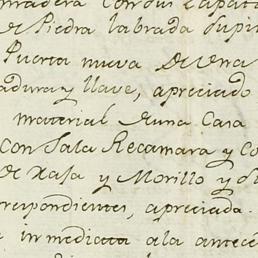 madera con su Zapata
de Piedra labrada supi
Puerta nueva de una
adura y llave, apreciado
material de una Casa
con Sala Recamara y Co
de Xasa y Morillo y su
respondientes, apreciada
e inmediata ala antece